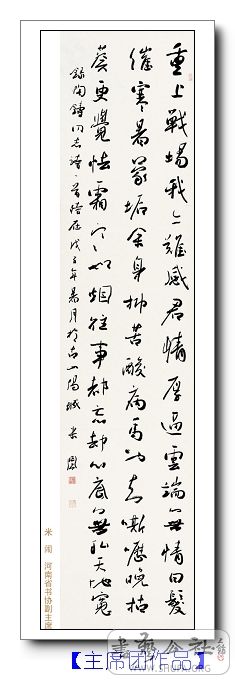 重上戰場我亦難感君情厚逼雲端無情白髮
催寒暑蒙垢余身抑苦酸病馬也知嘶櫪晚枯
葵更覺怯霜寒如烟往事都忘却心底無私天地寬
錄陶鑄同志詩一首 戊子年暑月於古山陽城 米鬧
米 闹 河南省书协副主席
【主席团作品】